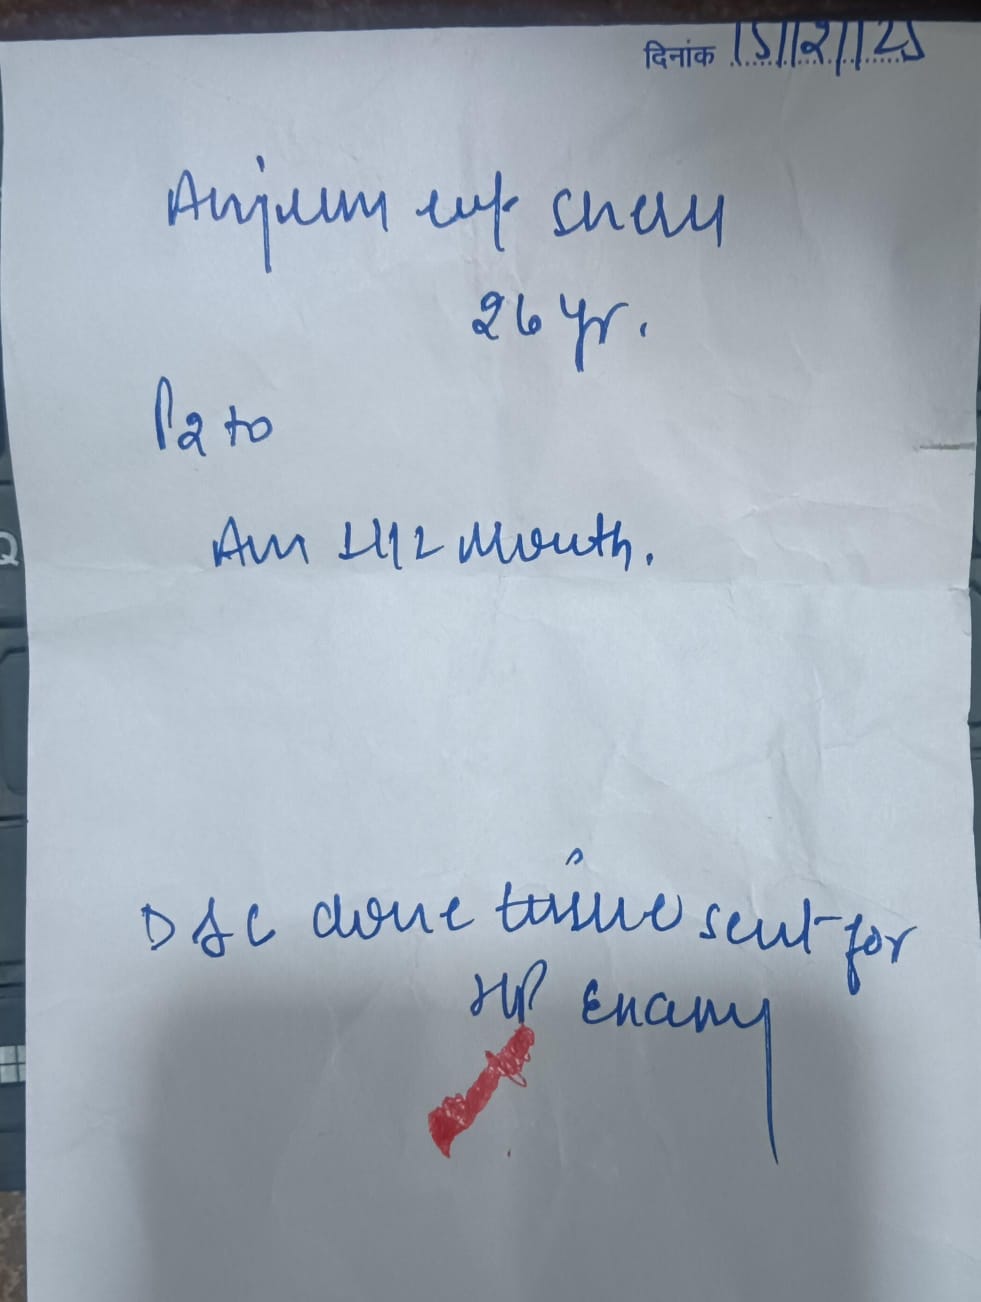 दिनांक 15/12/25
Anjum w/o
26 yr.
P2+0
Am 1 1/2 Month.
D&C done tissue sent for
HP Exam